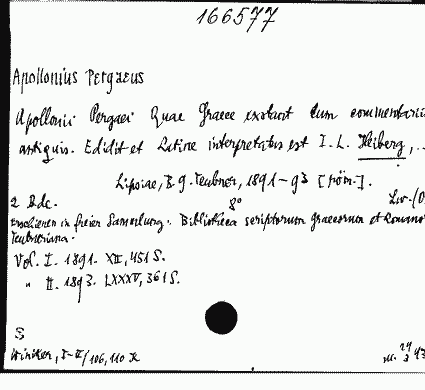 166577
Apollonius Pergaeus
Apollonii Pergaei Quae Graece exstant cum commentariis
antiquis. Edidit et Latine interpretatus est I. L. Heiberg, ..
Lipsiae, B. G. Teubner, 1891-93 [röm.].
2 Bde. 8°
Erschienen in freier Sammlung: Bibliotheca scriptorum Graecorum et Romano
Teubneriana.
Vol. I. 1891. XII, 451 S.
" II. 1893. LXXXV, 361 S.
S
106, 110 K